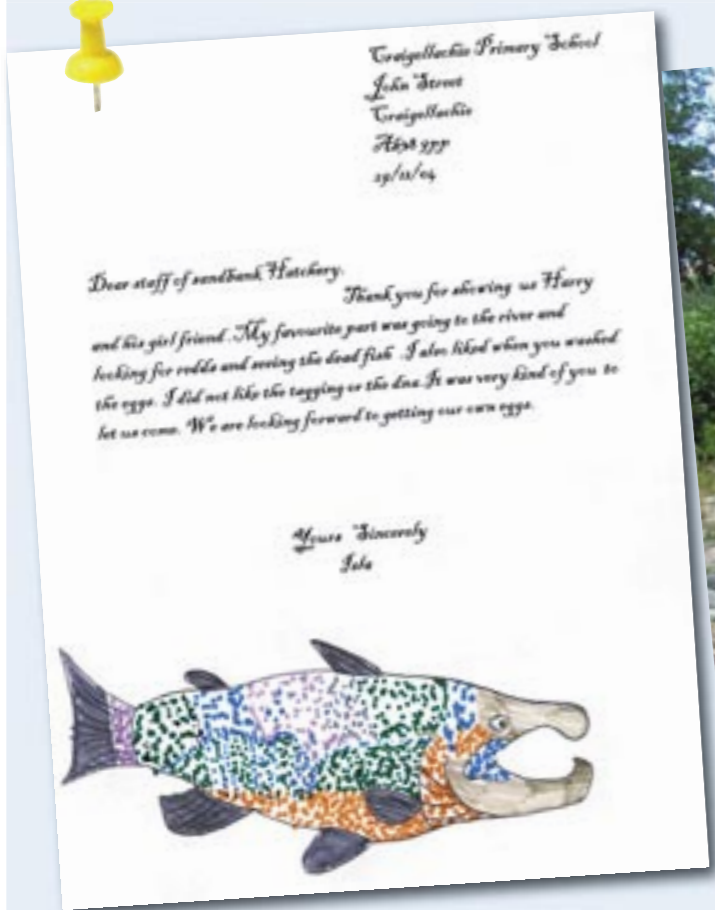 Craigellachie Primary School
John Street
Craigellachie
Ab38 9pp
29/11/04
Dear staff of sandbank Hatchery.
Thank you for showing us Harry
and his girl friend. My favourite part was going to the river and
looking for redds and seeing the dead fish. I also liked when you washed
the eggs. I did not like the tagging or the dna. It was very kind of you to
let us come. We are looking forward to getting our own eggs.
Yours Sincerely
Isla